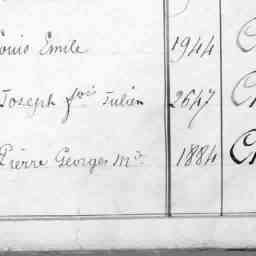 ouis Emile 1944 C
Joseph fois Julien 2647 C
Pierre Georges Mie 1884 C